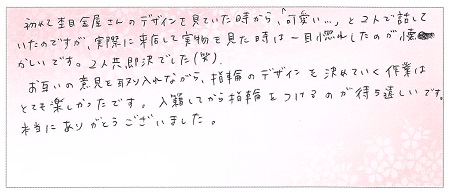 初めて杢目金屋さんのデザインを見ていた時から、「可愛い…」と2人で話して
いたのですが、実際に来店して実物を見た時は一目惚れしたのが懐
かしいです。2人共即決でした(笑)
お互いの意見を取り入れながら、指輪のデザインを決めていく作業は
とても楽しかったです。入籍してから指輪をつけるのが待ち遠しいです。
本当にありがとうございました。